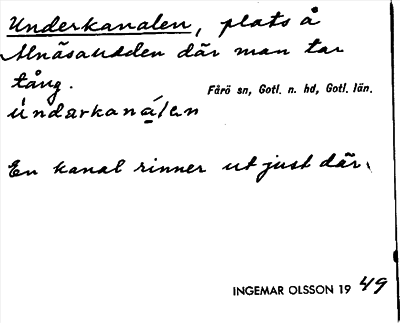 Underkanalen, plats å
Alnäsaudden där man tar
tång.
Fårö sn, Gotl. n. hd, Gotl. län.
ùndarkaná/en
En kanal rinner ut just där.
INGEMAR OLSSON 19 49